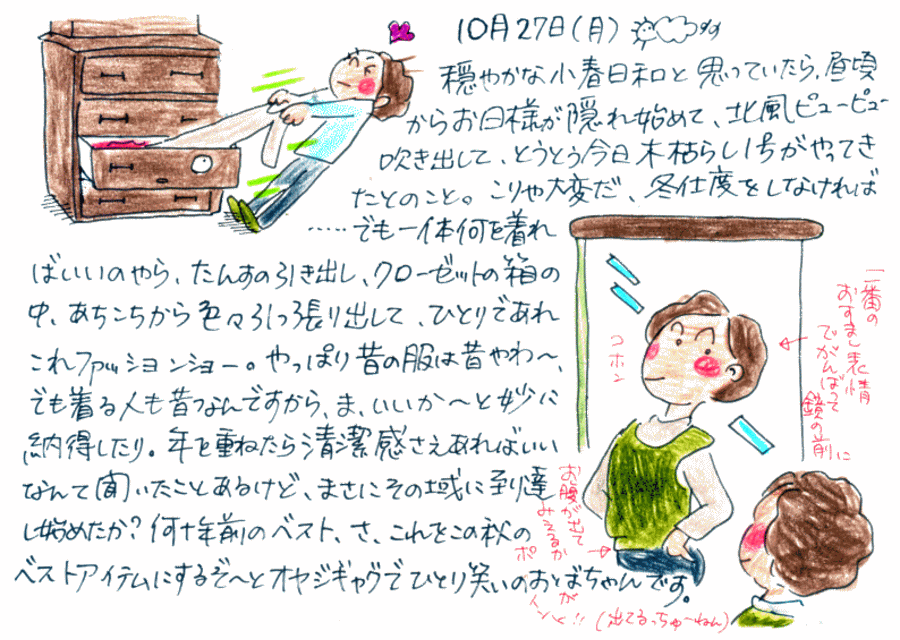 10月27日(月)
穏やかな小春日和と思っていたら、昼頃
からお日様が隠れ始めて、北風ピューピュー
吹き出して、とうとう今日木枯らし1号がやってき
たとのこと。こりゃ大変だ、冬仕度をしなければ
……でも一体何を着れ
ばいいのやら、たんすの引き出し、クローゼットの箱の
中、あちこちから色々引っ張り出して、ひとりであれ
これファッションショー。やっぱり昔の服は昔やわ〜、
でも着る人も昔つなんですから、ま、いいか〜と妙に
納得したり。年を重ねたら清潔感さえあればいい
なんて聞いたことあるけど、まさにその域に到達
し始めたか?何十年前のベスト、さ、これをこの秋の
ベストアイテムにするぞ〜とオヤジギャグでひとり笑いのおとばちゃんです。
コホン
一番の
おすまし表情
でがんばって
鏡の前に
お腹が出て
みえるか
ポ
が
(出てるっちゅーねん)